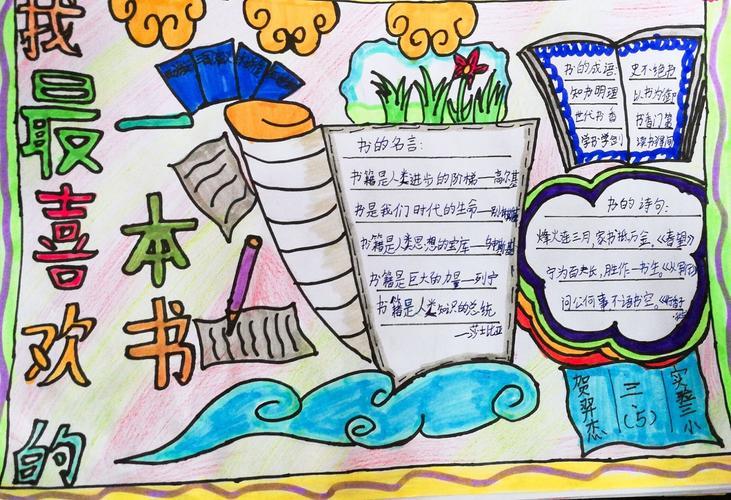 我最喜欢的
一本书
书的名言:
书籍是人类进步的阶梯——高尔基
书是我们时代的生命——别林斯基
书籍是人类思想的宝库——乌申斯基
书籍是巨大的力量—列宁
书籍是人类知识的总统
—莎士比亚
书的成语:
知书明理
世代书香
学书学剑
史不绝书
以书为御
书香门第
读书得间
书的诗句:
烽火连三月,家书抵万金。《春望》
宁为百夫长,胜作一书生。《从军行》
问公何事不语书空。
实验三小
三、(5)
贺羿杰